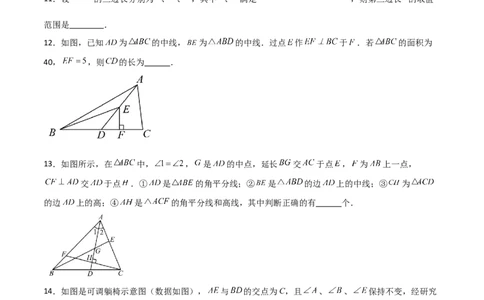 范围是________.
12. 如图，已知 AD 为 △ABC 的中线，BE 为 △ABD 的中线．过点 E 作 EF ⊥ BC 于 F．若 △ABC 的面积为
40，EF = 5，则 CD 的长为______．
A
E
B D F C
13. 如图所示，在 △ABC 中，∠1 = ∠2，G 是 AD 的中点，延长 BG 交 AC 于点 E，F 为 AB 上一点，
CF ⊥ AD 交 AD 于点 H．①AD 是 △ABE 的角平分线；②BE 是 △ABD 的边 AD 上的中线；③CH 为 △ACD
的边 AD 上的高；④AH 是 △ACF 的角平分线和高线，其中判断正确的有______个．
A
1 2
E
F G
H
B D C
14. 如图是可调躺椅示意图（数据如图），AE 与 BD 的交点为 C，且 ∠A、∠B、∠E 保持不变，经研究